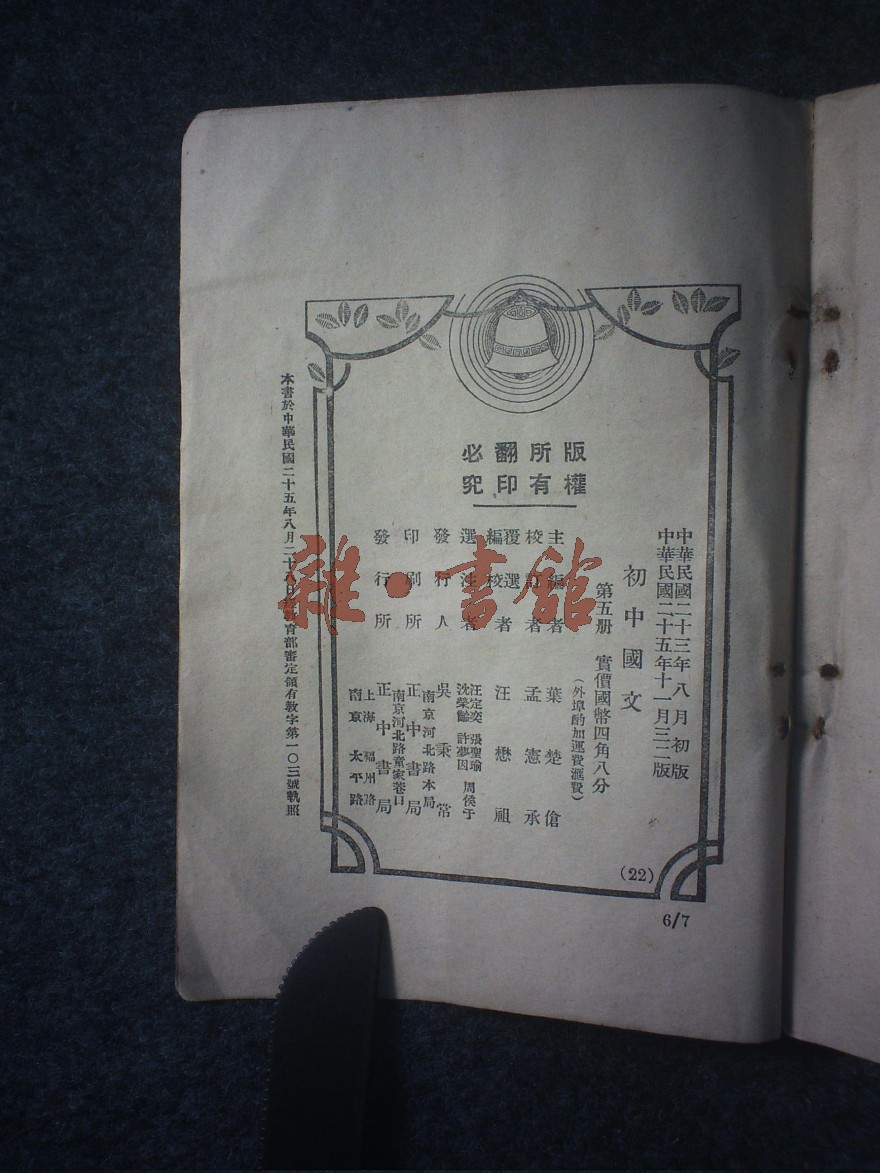 中華民國二十三年八月初版
中華民國二十五年十一月三二版
初中國文
第五册 實價國幣四角八分
(外埠酌加運費滙費)
版權所有翻印必究
主編者 葉楚傖
校訂者 孟憲承
覆選編校者 汪懋祖
選注者 汪定奕 張聖瑜 周侯于 沈榮齡 許夢因
發行人 吳秉常
南京河北路本局
印刷所 正中書局
南京河北路童家巷口
發行所 正中書局
上海福州路
南京太平路
(22)
6/7
本書於中華民國二十五年八月二十八日經教育部審定領有教字第一〇三號執照
雜·書館